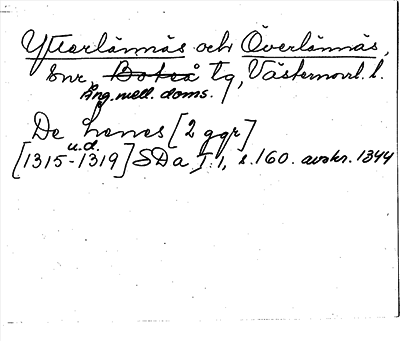 Ytterlännäs och Överlännäs,
snr, Boteå tg, Västernorrl. l.
Ång. mell. doms.
De Lenes [2 ggr]
u.d.
[1315-1319] SDa I:1, s. 160. avskr. 1344